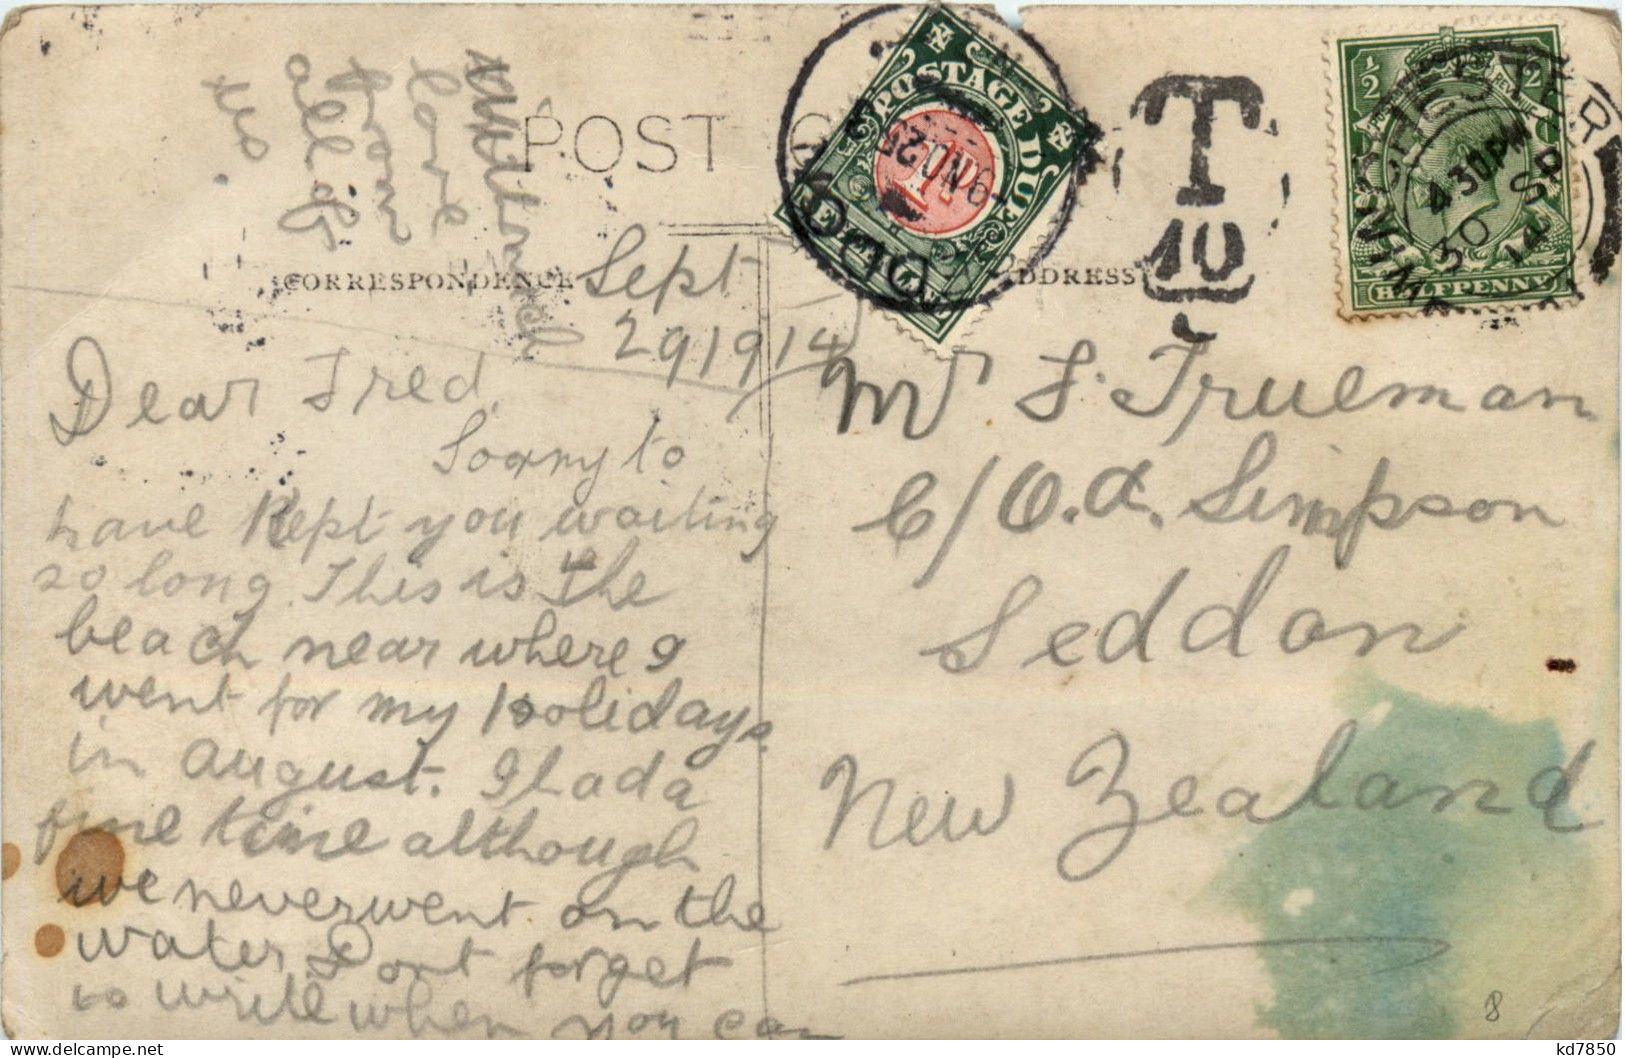 POST
CORRESPONDENCE
Sept
29 1914
Dear Fred,
Sorry to
have Kept you waiting
so long. This is the
beach near where I
went for my holidays.
in August. I had a
fine time although
we never went on the
water Dont forget
to write when you can
love
from
all of
us.
NZ
POSTAGE DUE
1D
T
10
½
½
REVENUE
HALFPENNY
WINCHESTER
4.30 PM
30 SP
14
DDRESS
Mr F. Trueman
C/O. A. Simpson
Seddon
New Zealand
8
kd7850